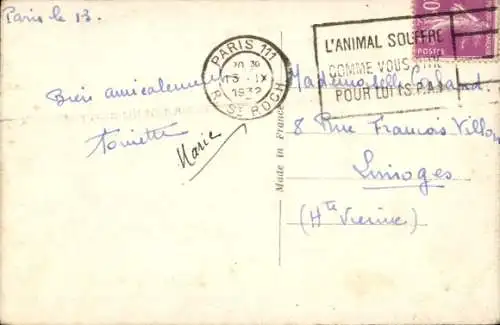 Paris le 13.
Bien amicalement
Toinette
Marie
PARIS 111
20 30
13 - IX
1932
R. St ROCH
L'ANIMAL SOUFFRE
COMME VOUS
POUR LUI LS.P.A
POSTES
Made in France
Mademoiselle
8 Rue François Villon
Limoges
(Hte Vienne)